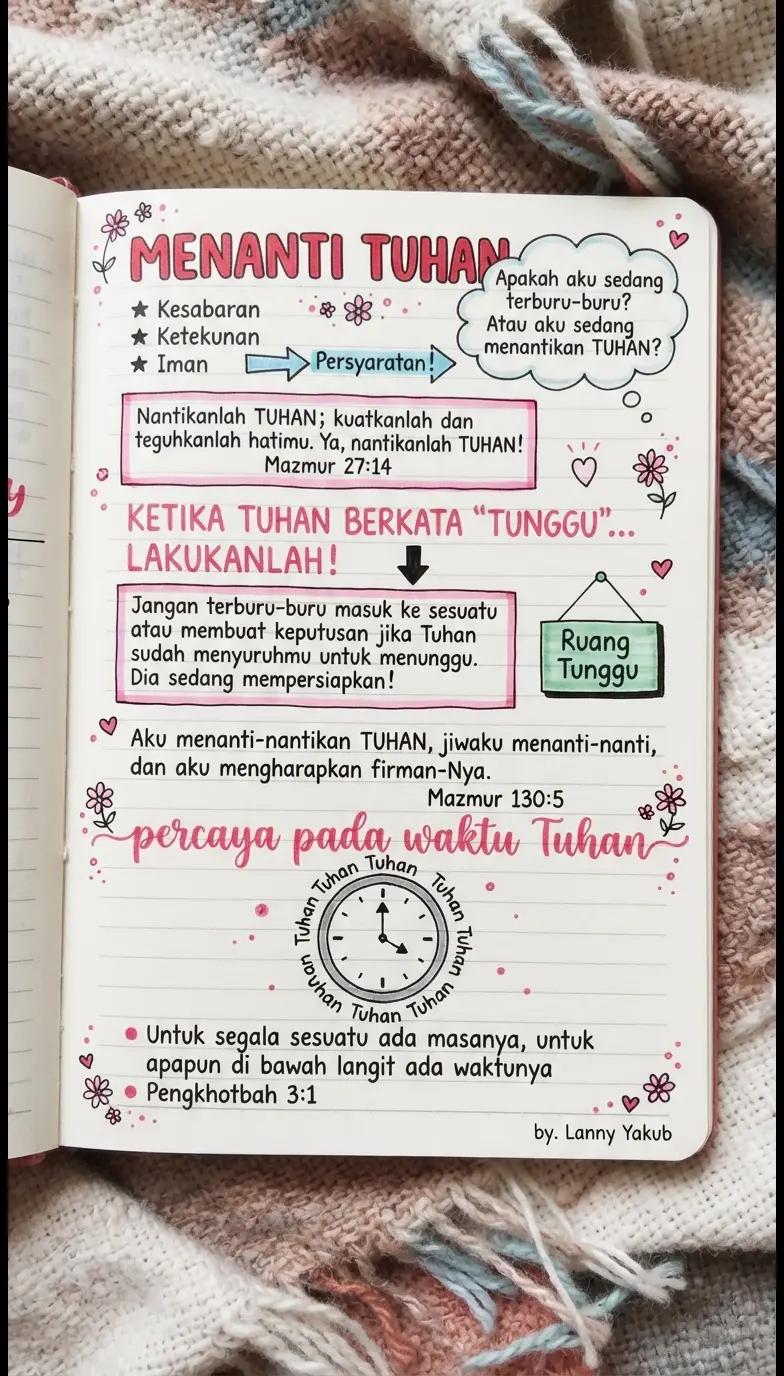 MENANTI TUHAN
Apakah aku sedang
terburu-buru?
Atau aku sedang
menantikan TUHAN?
★ Kesabaran
★ Ketekunan
★ Iman
Persyaratan!
Nantikanlah TUHAN; kuatkanlah dan
teguhkanlah hatimu. Ya, nantikanlah TUHAN!
Mazmur 27:14
KETIKA TUHAN BERKATA “TUNGGU”...
LAKUKANLAH!
Jangan terburu-buru masuk ke sesuatu
atau membuat keputusan jika Tuhan
sudah menyuruhmu untuk menunggu.
Dia sedang mempersiapkan!
Ruang
Tunggu
Aku menanti-nantikan TUHAN, jiwaku menanti-nanti,
dan aku mengharapkan firman-Nya.
Mazmur 130:5
percaya pada waktu Tuhan
Tuhan Tuhan Tuhan Tuhan Tuhan Tuhan Tuhan
• Untuk segala sesuatu ada masanya, untuk
apapun di bawah langit ada waktunya
• Pengkhotbah 3:1
by. Lanny Yakub
y